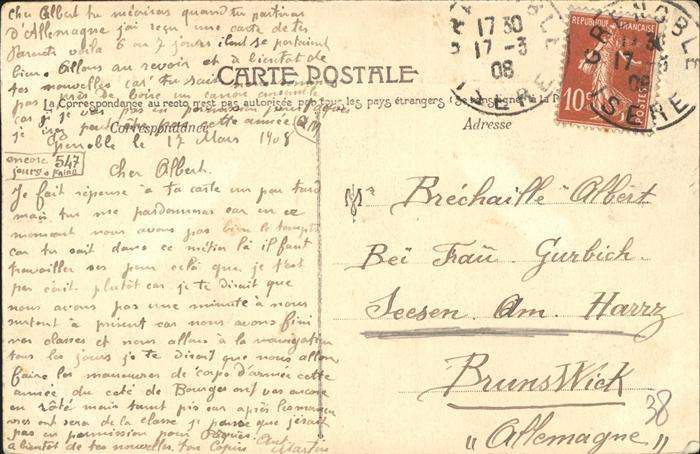 Cher Albert tu m'écriras quand tu partiras
d'Allemagne j'ai reçu une carte de tes
Parents voila 6 ou 7 jours il ont se portaient
bien. Allons au revoir et à bientôt de
tes nouvelles car tu sais
pas de boire un canon ensemble
car je
je cette année.
CARTE POSTALE
La Correspondance au recto n'est pas autorisée par tous les pays étrangers
Correspondance
Adresse
Grenoble le 17 Mars 1908
encore 547
jours a faire
Cher Albert.
Je fait réponse à ta carte un peu tard
mais tu me pardonneras car en ce
moment nous avons pas bien le temps
car tu sait dans ce métier là il faut
travailler ses pour celà que je t'est
pas écrit plutôt car je te dirait que
nous avons pas une minute à nous
surtout à present car nous avons fini
nos classes et nous allons à la navigation
tous les jours je te dirait que nous allons
faire les manœuvres de corps d'armée cette
année du coté de Bourges ont vas encore
en rôté mais tant pis car après les manœu
vres ont sera de la classe je pense que j'irait
pas en permission pour Pâques.
a bientôt de tes nouvelles. ton Copin
Martin
Bréchaille Albert
Beï Fraü Gurbich
Seesen Am Harrz
BrunsWick
"Allemagne"
38
GRENOBLE
17 30
17 -3
08
ISERE
REPUBLIQUE FRANÇAISE
10
POSTES
GRENOBLE
17 30
17 -3
08
ISERE